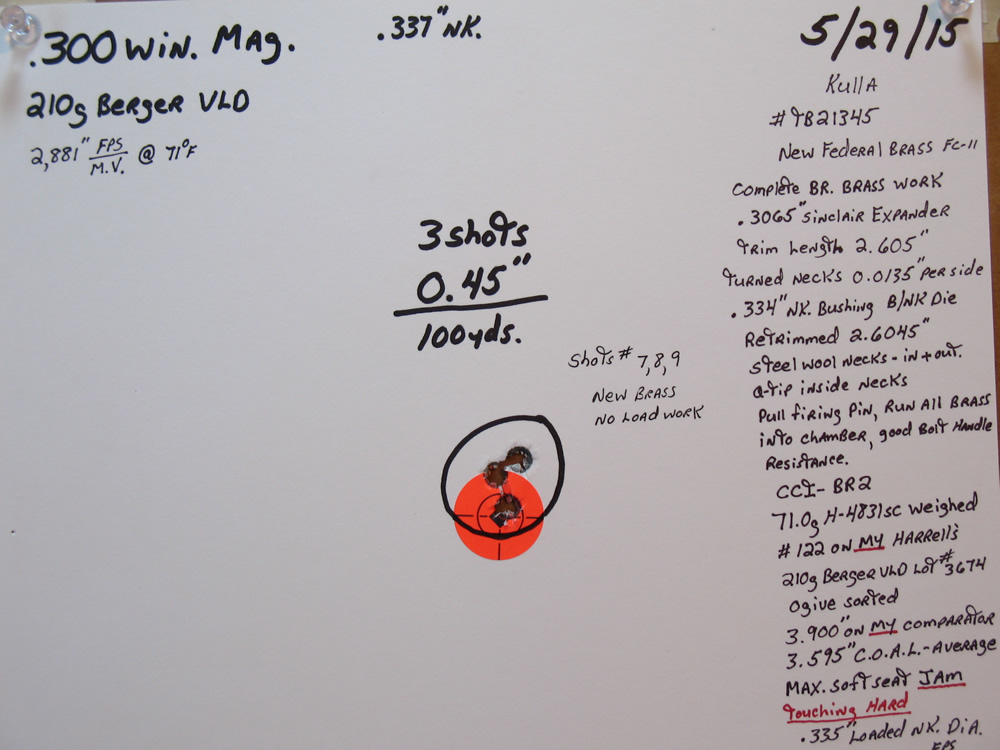 .300 Win. Mag.
.337" NK.
5/29/15
210g Berger VLD
2,881" FPS/M.V. @ 71°F
Kulla
# TB21345
New Federal Brass FC-11
Complete BR. Brass Work
.3065" Sinclair Expander
Trim Length 2.605"
Turned Necks 0.0135" per side
.334" NK. Bushing B/NK Die
Retrimmed 2.6045"
Steel wool necks - in + out.
Q-tip inside necks
Pull firing pin, Run All Brass
into chamber, good Bolt Handle
Resistance.
CCI- BR2
71.0g H-4831sc weighed
# 122 on My Harrell's
210g Berger VLD Lot # 3674
Ogive sorted
3.900" on My comparator
3.595" C.O.A.L.-Average
Max. soft seat Jam
Touching Hard
.335" Loaded NK. Dia.
FPS
3 shots
0.45"
100yds.
Shots # 7,8,9
New Brass
No Load Work